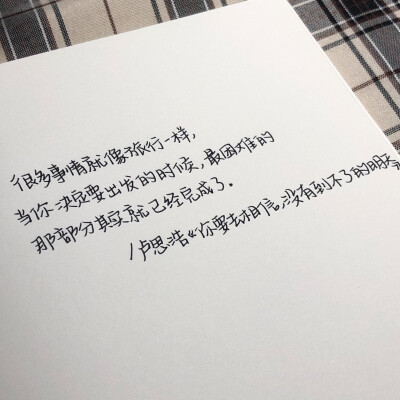 很多事情就像旅行一样,
当你决定要出发的时候,最困难的
那部分其实就已经完成了.
/卢思浩《你要去相信,没有到不了的明天